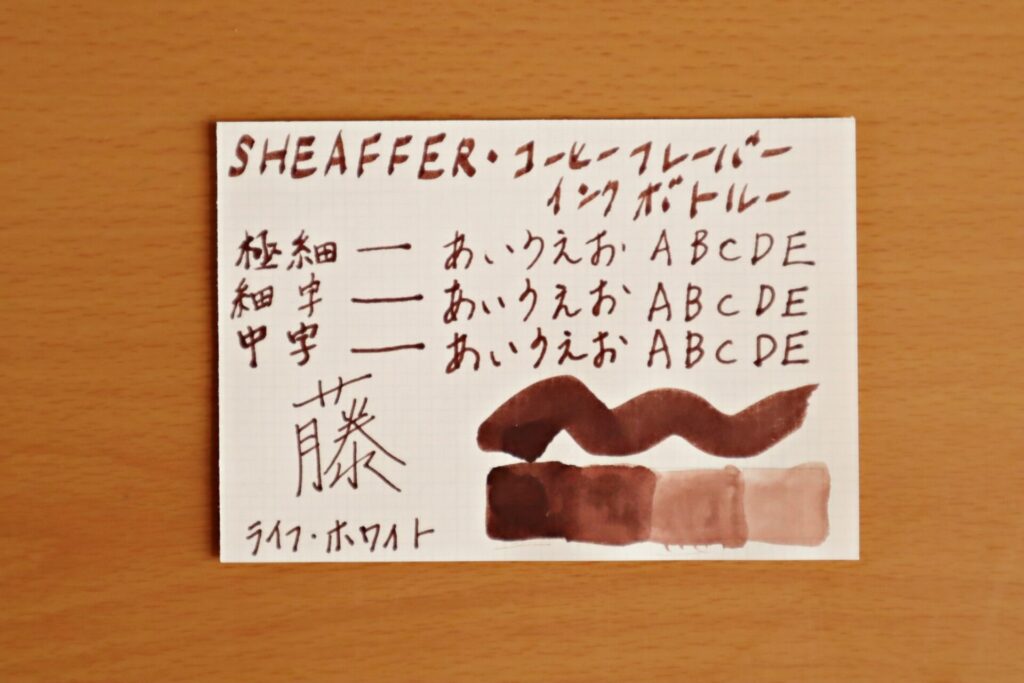 SHEAFFER・コーヒーフレーバー
インクボトルー
極細 ー あいうえお ABCDE
細字 ー あいうえお ABCDE
中字 ー あいうえお ABCDE
藤
ライフ・ホワイト